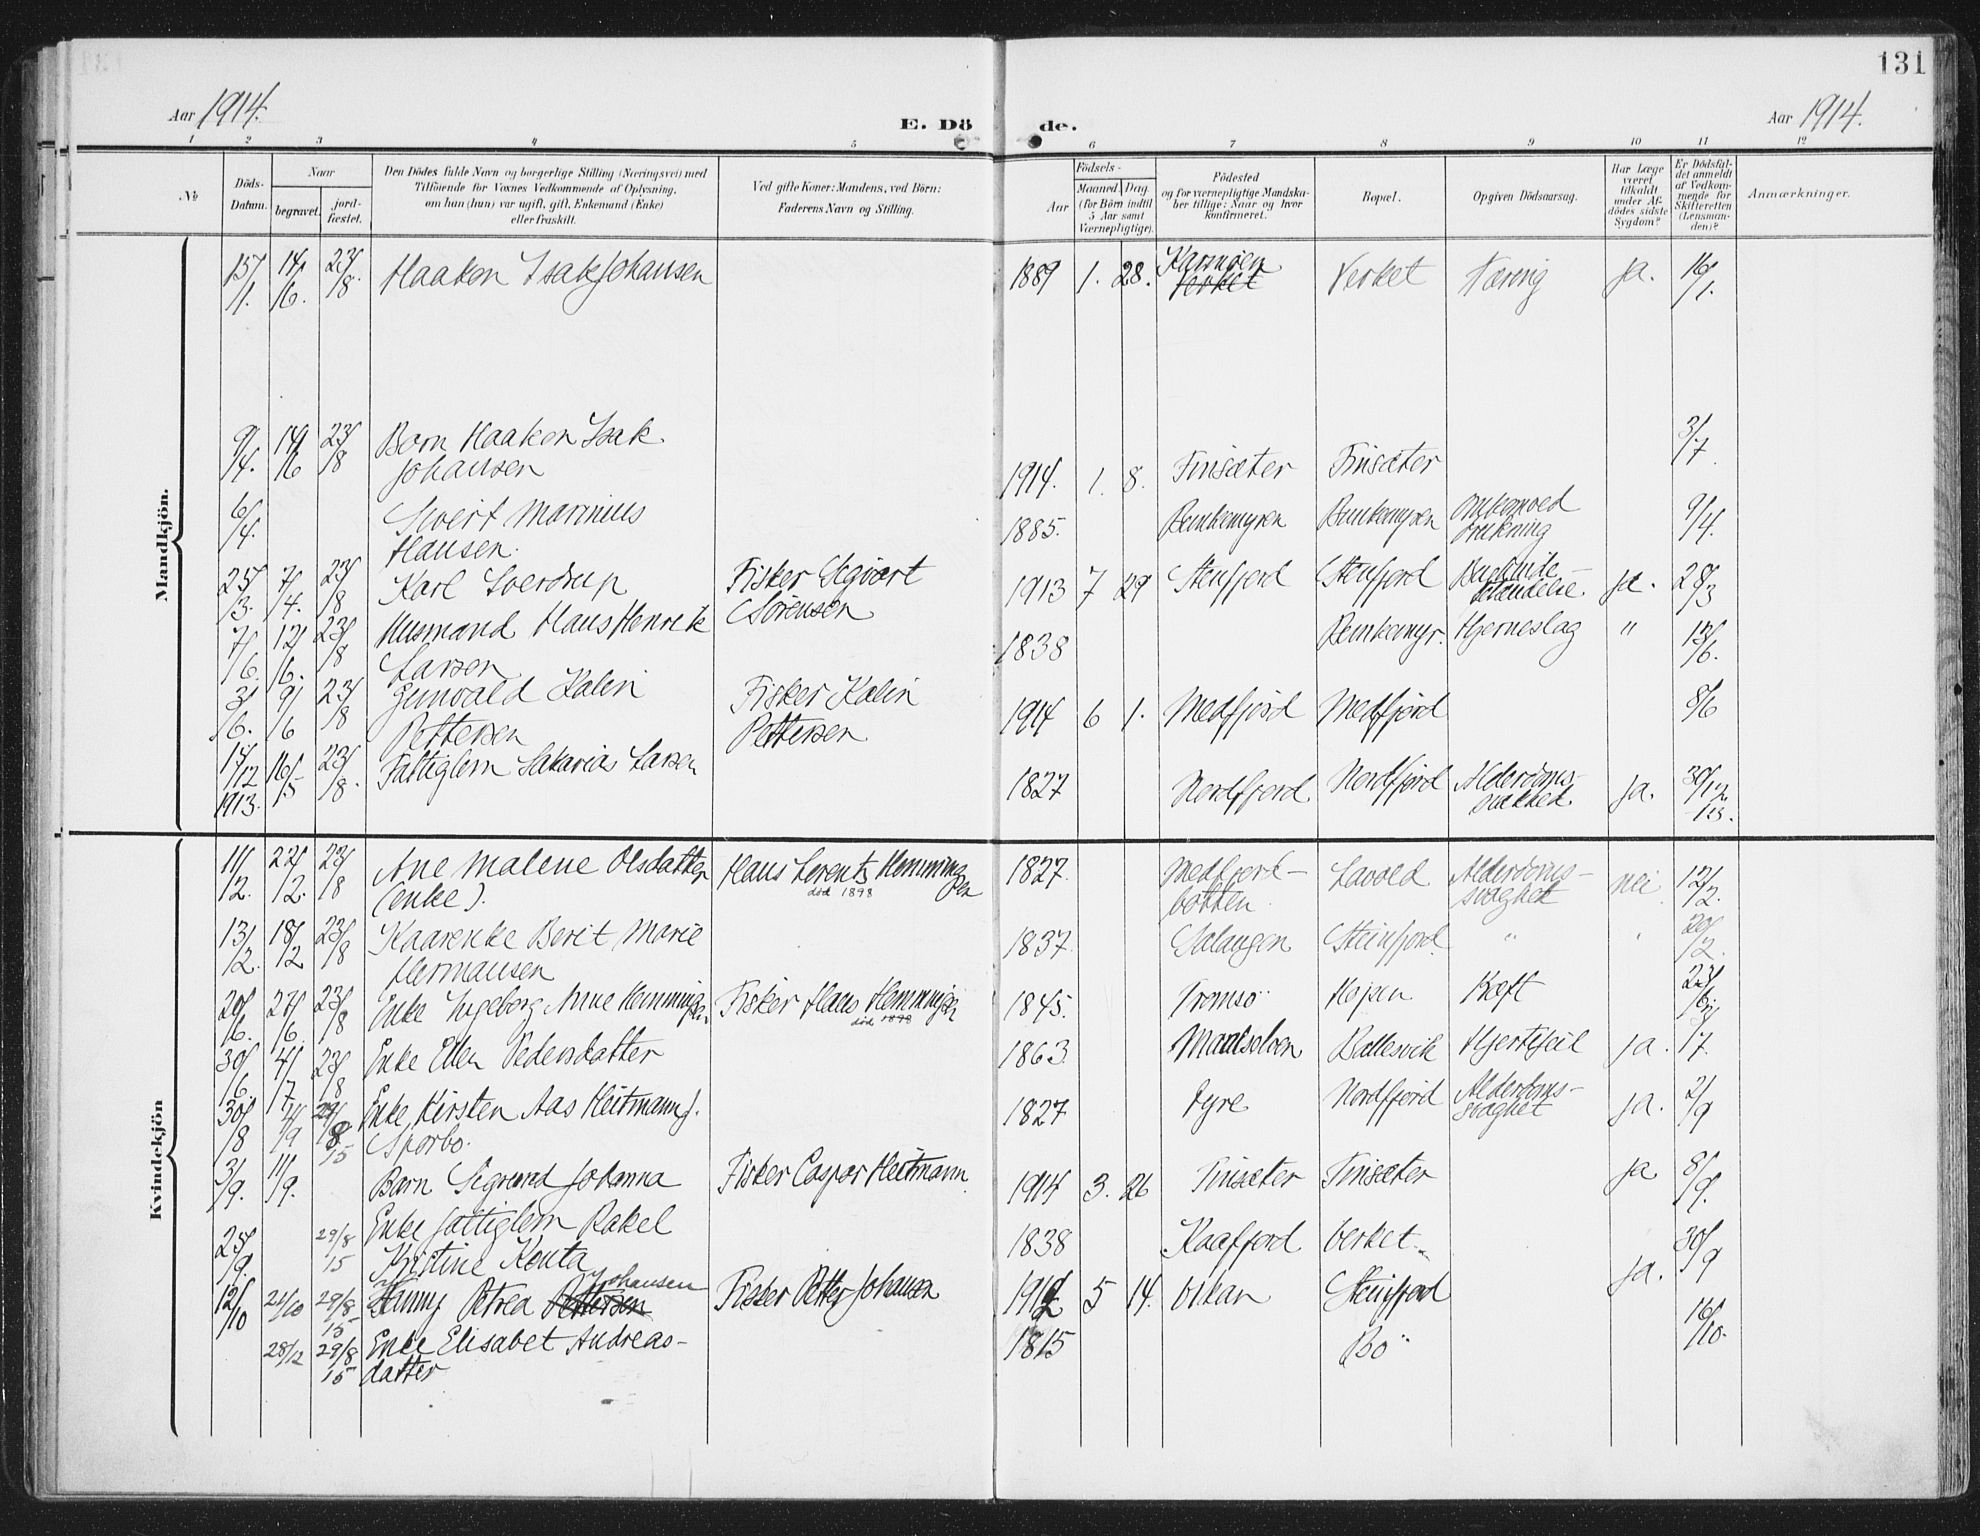 131
Aar 1914.
E. Dö de.
Aar 1914.
1 2 3 4 5 6 7 8 9 10 11 12
No
Döds-
Datum.
Naar
begravet.
jord-
fæstet.
Den Dödes fulde Navn og borgerlige Stilling (Næringsvei) med
Tilföiende for Voxnes Vedkommende af Oplysning,
om han (hun) var ugift, gift, Enkemand (Enke)
eller fraskilt.
Ved gifte Koner: Mandens, ved Börn:
Faderens Navn og Stilling.
Födsels-
Aar
Maaned
Dag.
(for Börn indtil
5 Aar samt
Værnepligtige).
Födested
og for værnepligtige Mandska-
ber tillige: Naar og hvor
konfirmeret.
Bopæl.
Opgiven Dödsaarsag.
Har Læge
været
tilkaldt
under Af-
dödes sidste
Sygdom?
Er Dödsfal-
det anmeldt
af Vedkom-
mende for
Skifteretten
(Lensman-
den)?
Anmærkninger.
Mandkjön.
15/1. 14/6. 23/8 Haakon Isak Johansen 1889 1. 28. Karmøen Verket Tæring ja. 16/1.
9/4. 14/6 23/8 Barn Haakon Isak
Johansen 1914. 1. 8. Finsæter Finsæter 3/7
6/4. Sivert Marinius
Hansen. 1885. 9/4.
25/3. 7/4. 23/8 Karl Sverdrup Fisker Sigvart
Sörensen 1913 7 29 Stenfjord Stenfjord ja. 28/3
7/6. 12/6. 23/8 Husmand Hans Henrik
Larsen 1838 Hjerneslag " 12/6.
3/6. 9/6 23/8 Kalin
Pettersen Fisker Kalin
Pettersen 1914 6 1. Medfjord Medfjord 8/6
14/12 1913. 16/5 23/8. Fattiglem Sakarias Larsen 1827 Nordfjord Nordfjord Alderdoms-
svakhed ja. 30/12 13.
Kvindekjön
11/2. 22/2. 23/8 Ane Malene Olsdatter
(enke). Hans Lorentz Hemming
sen
död 1898 1827. Medfjord-
botten Lavold Alderdoms-
svaghet nei 12/2.
13/2. 18/2 23/8 Kaarenke Berit Marie
Hermansen 1837. Salangen Steinfjord. " " 20/2.
20/6. 27/6. 23/8 Enke Ingeborg Anne Hemmingsen Fisker Hans Hemmingsen
död 1898 1845. Tromsö Kræft
30/6. 4/7 23/8 Enke Ellen Pedersdatter 1863 Maalselven Ballesvik Hjertefeil ja.
30/8 29/8 15 Enke Kirsten Aas Heitmann f.
Sporbo. 1827 Dyre Nordfjord Alderdoms-
svaghet ja. 2/9
3/9. 11/9. Barn Sigrund Johanna Fisker Caspar Heitmann 1914 3. 26 Finsæter Finsæter ja 8/9.
25/9. 29/8 15 Enke fattiglem Rakel
Kristine Konta 1838 Kaafjord Verket 30/9
12/10 24/10 29/8 15 Fanny Petrea Pettersen Johansen Fisker Petter Johansen 1912 5 14. Vikan Steinfjord ja. 16/10.
28/12 29/8 15 Enke Elisabet Andreas-
datter 1815 Bö